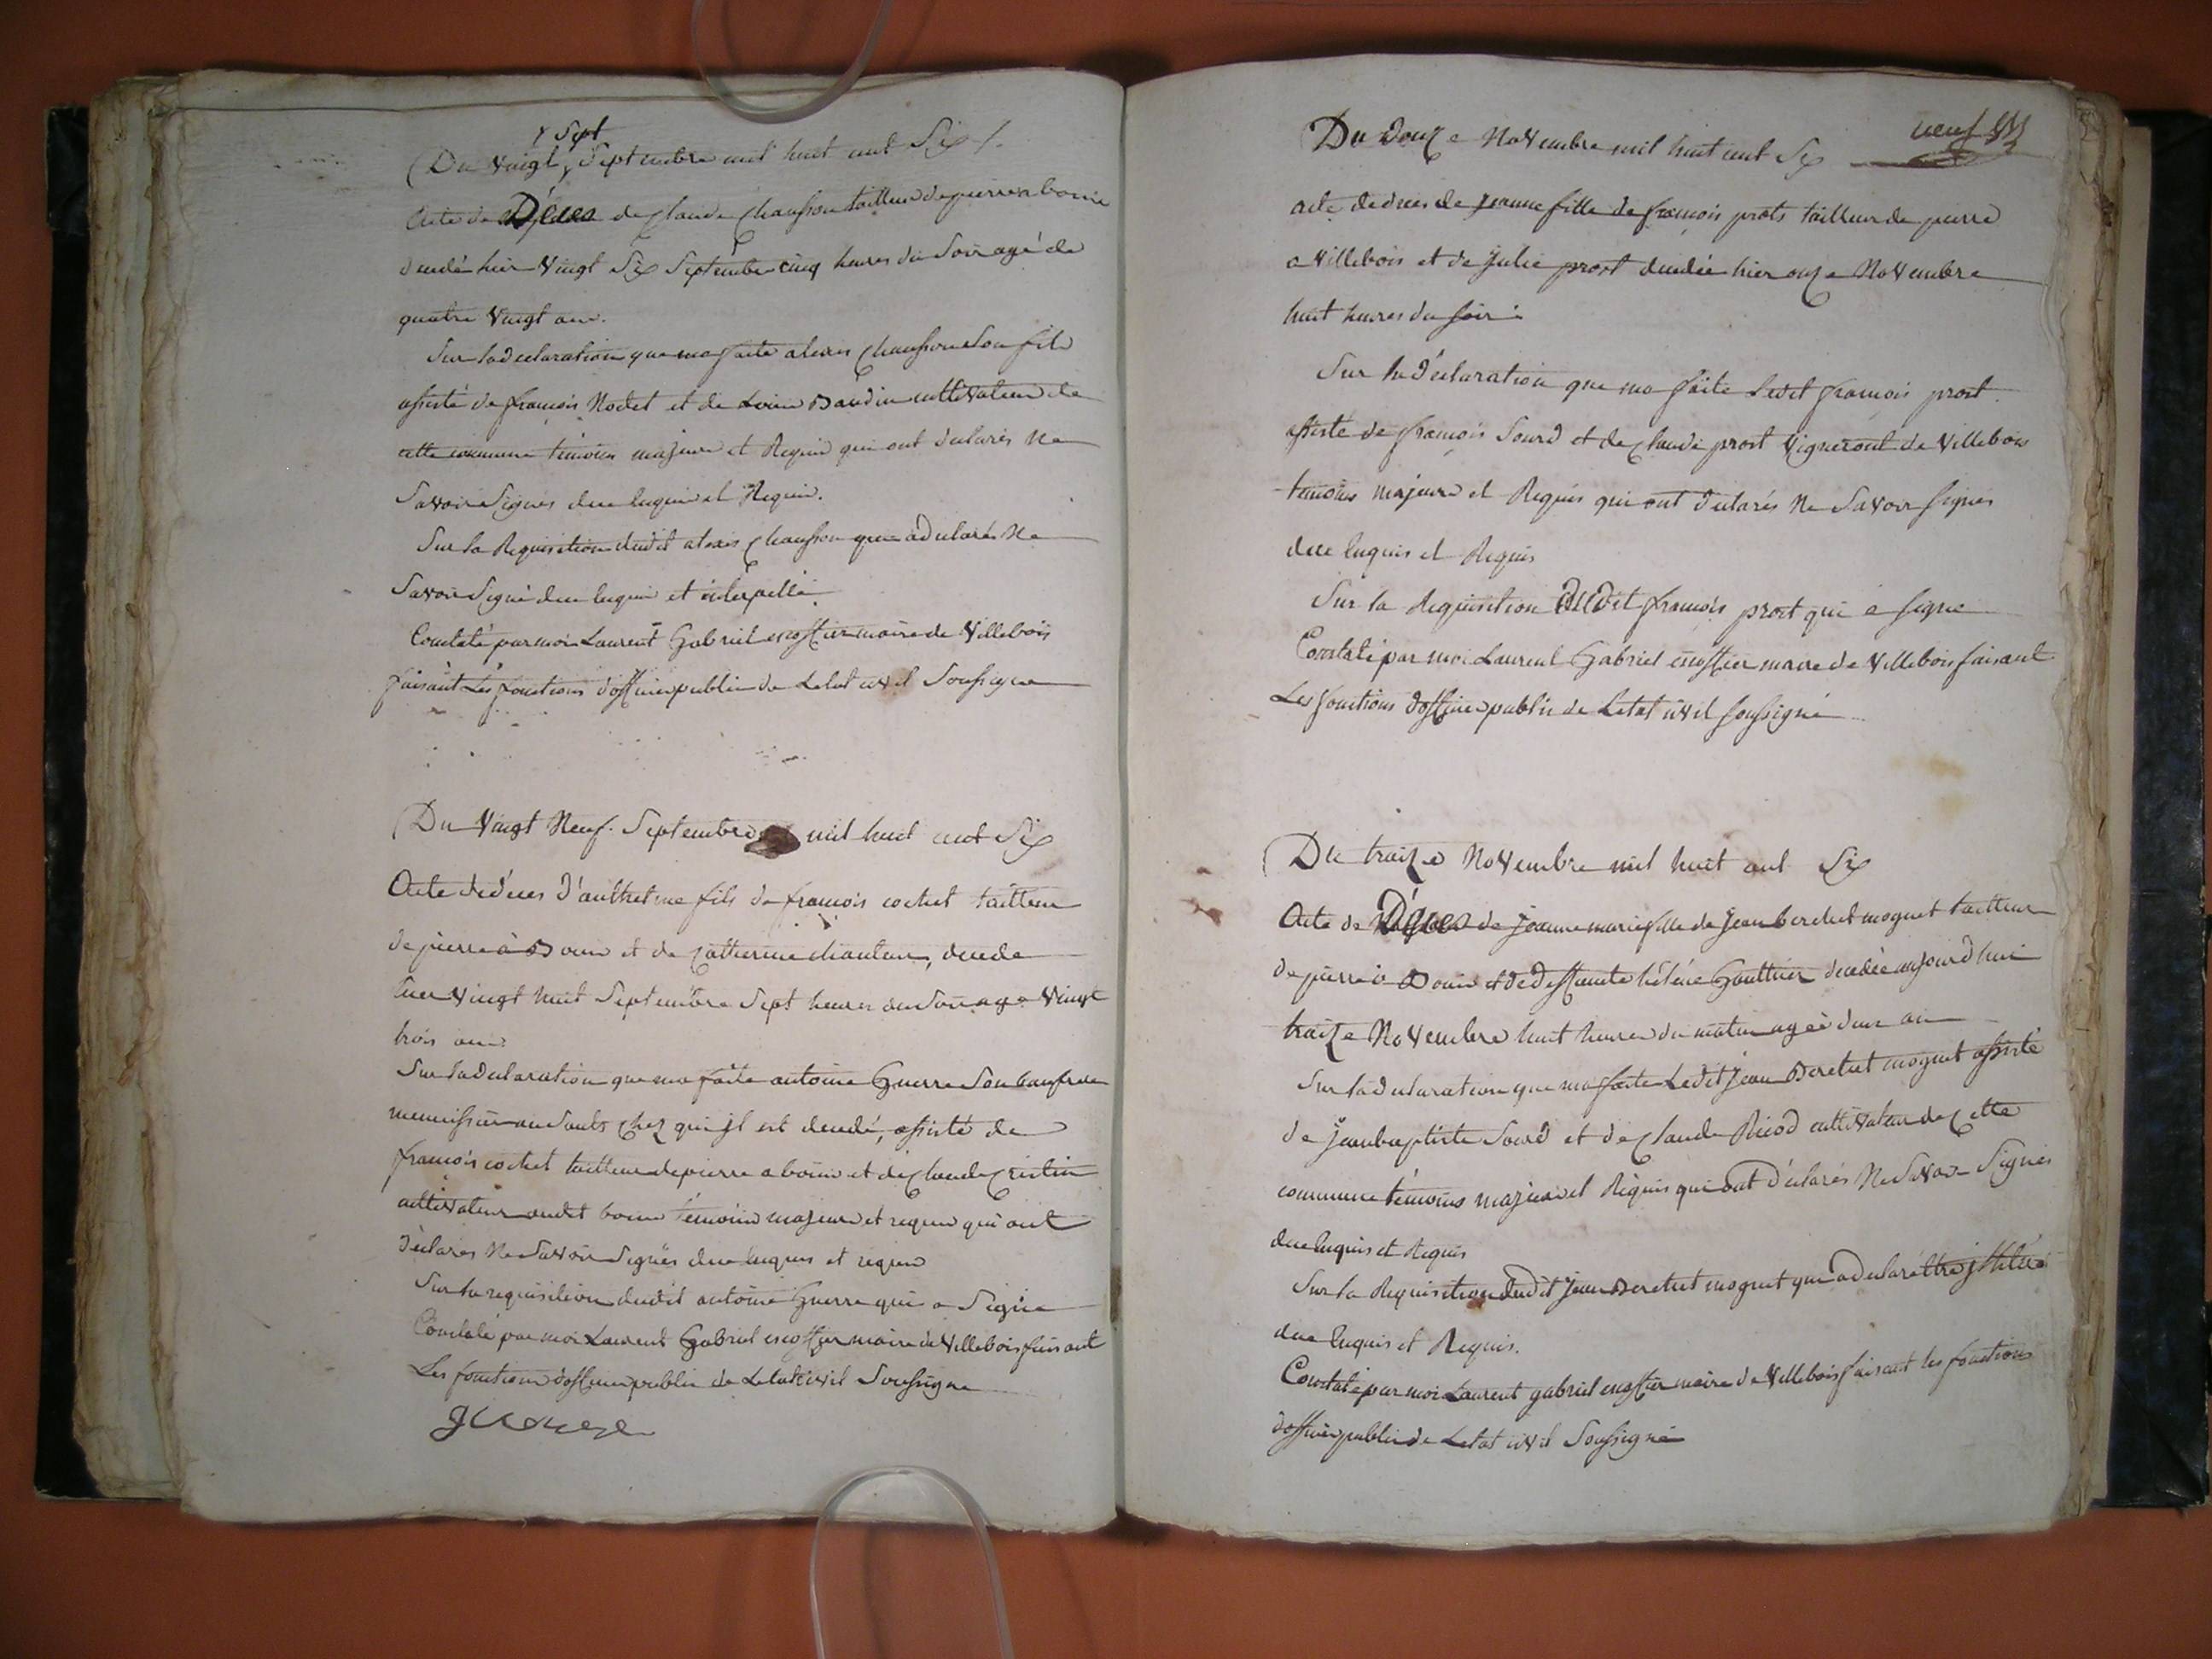 Du Vingt sept Septembre mil huit cent Six /.
Acte de Déces de Claude Chausson tailleur de pierre a bouis
decedé hier Vingt Six Septembre cinq heures du Soir agé de
quatre Vingt ans.
Sur la declaration que ma faite alexis Chausson Son fils
assisté de françois Nodet et de Baudin cultivateurs de
cette commune témoins majeurs et Requis qui ont declarés Ne
Savoir Signer de ce enquis et Requis.
Sur la Requisition dudit alexis Chausson qui a declarés Ne
Savoir Signé de ce enquis et interpellé
Constaté par moi Laurent Gabriel escoffier maire de Villebois
faisant Les fonctions dofficier public de Letat civil Soussigne
Du Vingt Neuf Septembre mil huit cent Six
Acte de déces d'anthelme fils de françois cochet tailleur
de pierre à Bouis et de Catherine chanteur, decede
hier Vingt huit Septembre Sept heures du Soir age Vingt
trois ans
Sur la declaration que ma faite antoine Guerre Son beaufrere
menuisier au Saults chez qui jl est decedé, assisté de
françois cochet tailleur de pierre a bouis et de Claude Cristin
cultivateur audit bouis témoins majeurs et requis qui ont
déclarés Ne Savoir Signés de ce enquis et requis
Sur la requisition dudit antoine Guerre qui a Signe
Constaté par moi Laurent Gabriel escoffier maire de Villebois faisant
Les fonctions dofficier public de Letat civil Soussigne
neuf
Du Douze Novembre mil huit cent Six
acte de deces de jeanne fille de françois prots tailleur de pierre
a Villebois et de julie prost decedée hier onze Novembre
huit heures du soir
Sur la déclaration que ma faite Ledit françois prost
assisté de françois Sourd et de Claude prost Vigneront de Villebois
temoins majeurs et Requis qui ont declarés Ne Savoir signer
de ce enquis et Requis
Sur la Requisition Dudit françois prost qui a signe
Constaté par moi Laurent Gabriel escoffier maire de Villebois faisant
Les fonctions dofficier public de Letat civil soussigné
Du traize Novembre mil huit cent Six
Acte de Déces de jeanne marie fille de jean berchet moguet tailleur
de pierre à Bouis et de deffunte héléne Gauthier decedée aujourdhui
traize Novembre huit heures du matin agée dun an
Sur la declaration que ma faite Ledit jean Berchet moguet assisté
de jeanbaptiste Sourd et de Claude Riod cultivateur de Cette
commune témoins majeurs et Réquis qui ont déclarés Ne Savoir Signer
de ce enquis et Requis
Sur la Requisition dudit jean Berchet moguet qui a declaré Etre jlletéré
de ce enquis et Requis.
Constaté par moi Laurent gabriel escoffier maire de Villebois faisant les fonctions
dofficier public de Letat civil Soussigné